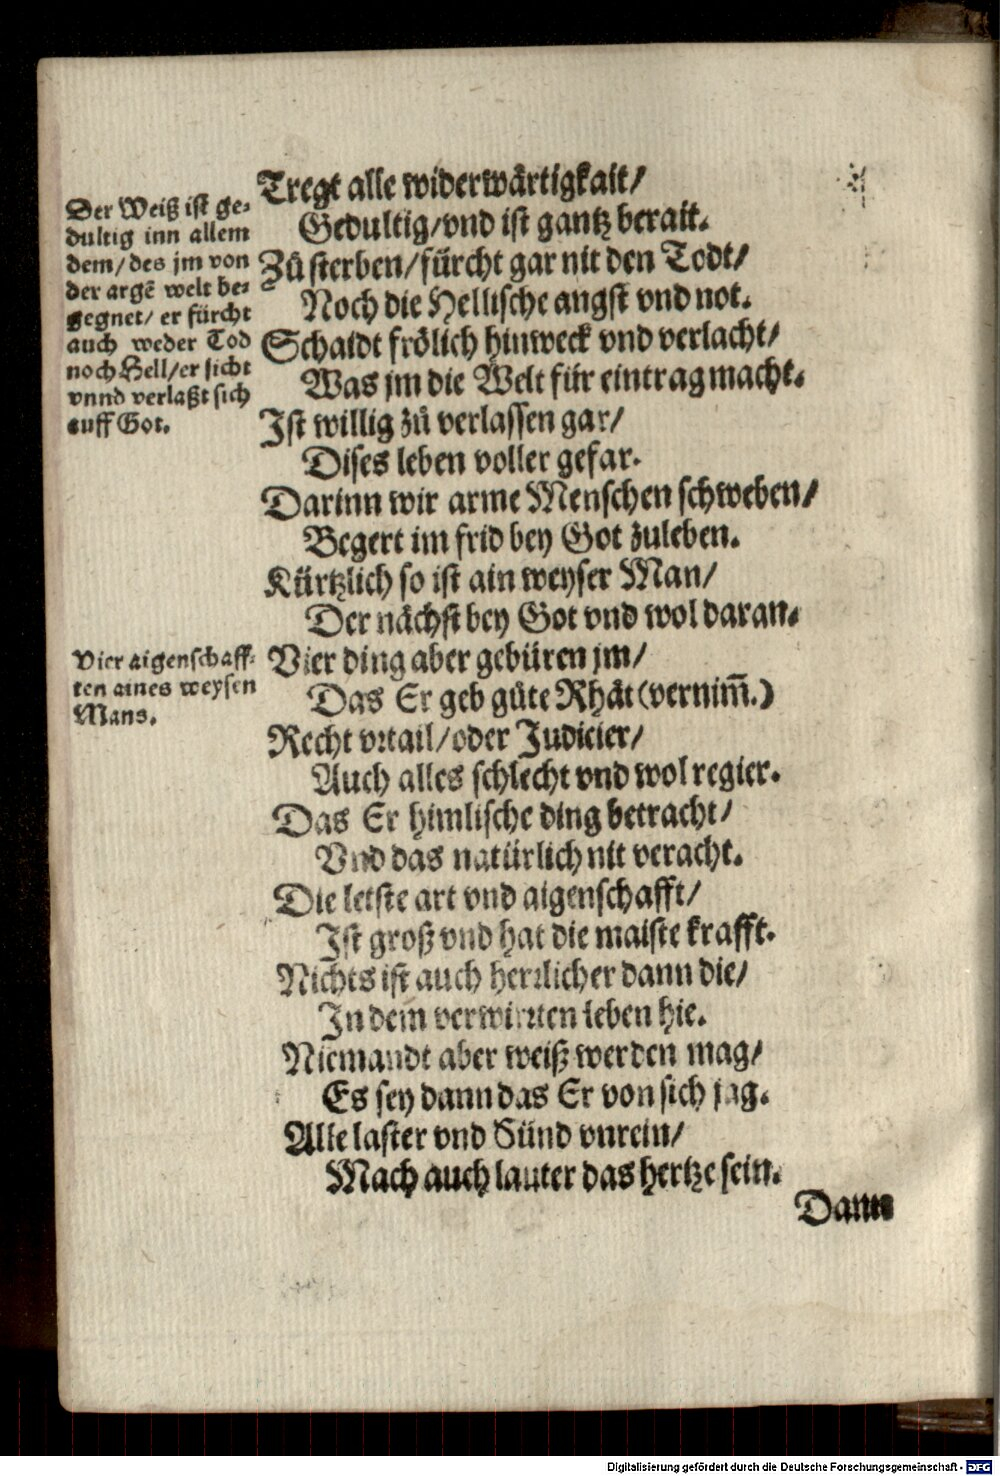 Der Weiß ist ge-
dultig inn allem
dem/des jm von
der argē welt be-
gegnet/ er fürcht
auch weder Tod
noch Hell/er sicht
vnnd verlaßt sich
auff Got.
Tregt alle widerwärtigkait/
Gedultig/vnd ist gantz berait.
Zů sterben/fürcht gar nit den Todt/
Noch die Hellische angst vnd not.
Schaidt frölich hinweck vnd verlacht/
Was jm die Welt für eintrag macht.
Ist willig zů verlassen gar/
Dises leben voller gefar.
Darinn wir arme Menschen schweben/
Begert im frid bey Got zuleben.
Kürtzlich so ist ain weyser Man/
Der nächst bey Got vnd wol daran.
Vier aigenschaff-
ten aines weysen
Mans.
Vier ding aber gebüren jm/
Das Er geb gůte Rhät (vernim̄.)
Recht vrtail/oder Judicier/
Auch alles schlecht vnd wol regier.
Das Er himlische ding betracht/
Vnd das natürlich nit veracht.
Die letste art vnd aigenschafft/
Ist groß vnd hat die maiste krafft.
Nichts ist auch herrlicher dann die/
In dem verwirrten leben hie.
Niemandt aber weiß werden mag/
Es sey dann das Er von sich jag.
Alle laster vnd Sünd vnrein/
Mach auch lauter das hertze sein.
Dann
Digitalisierung gefördert durch die Deutsche Forschungsgemeinschaft - DFG